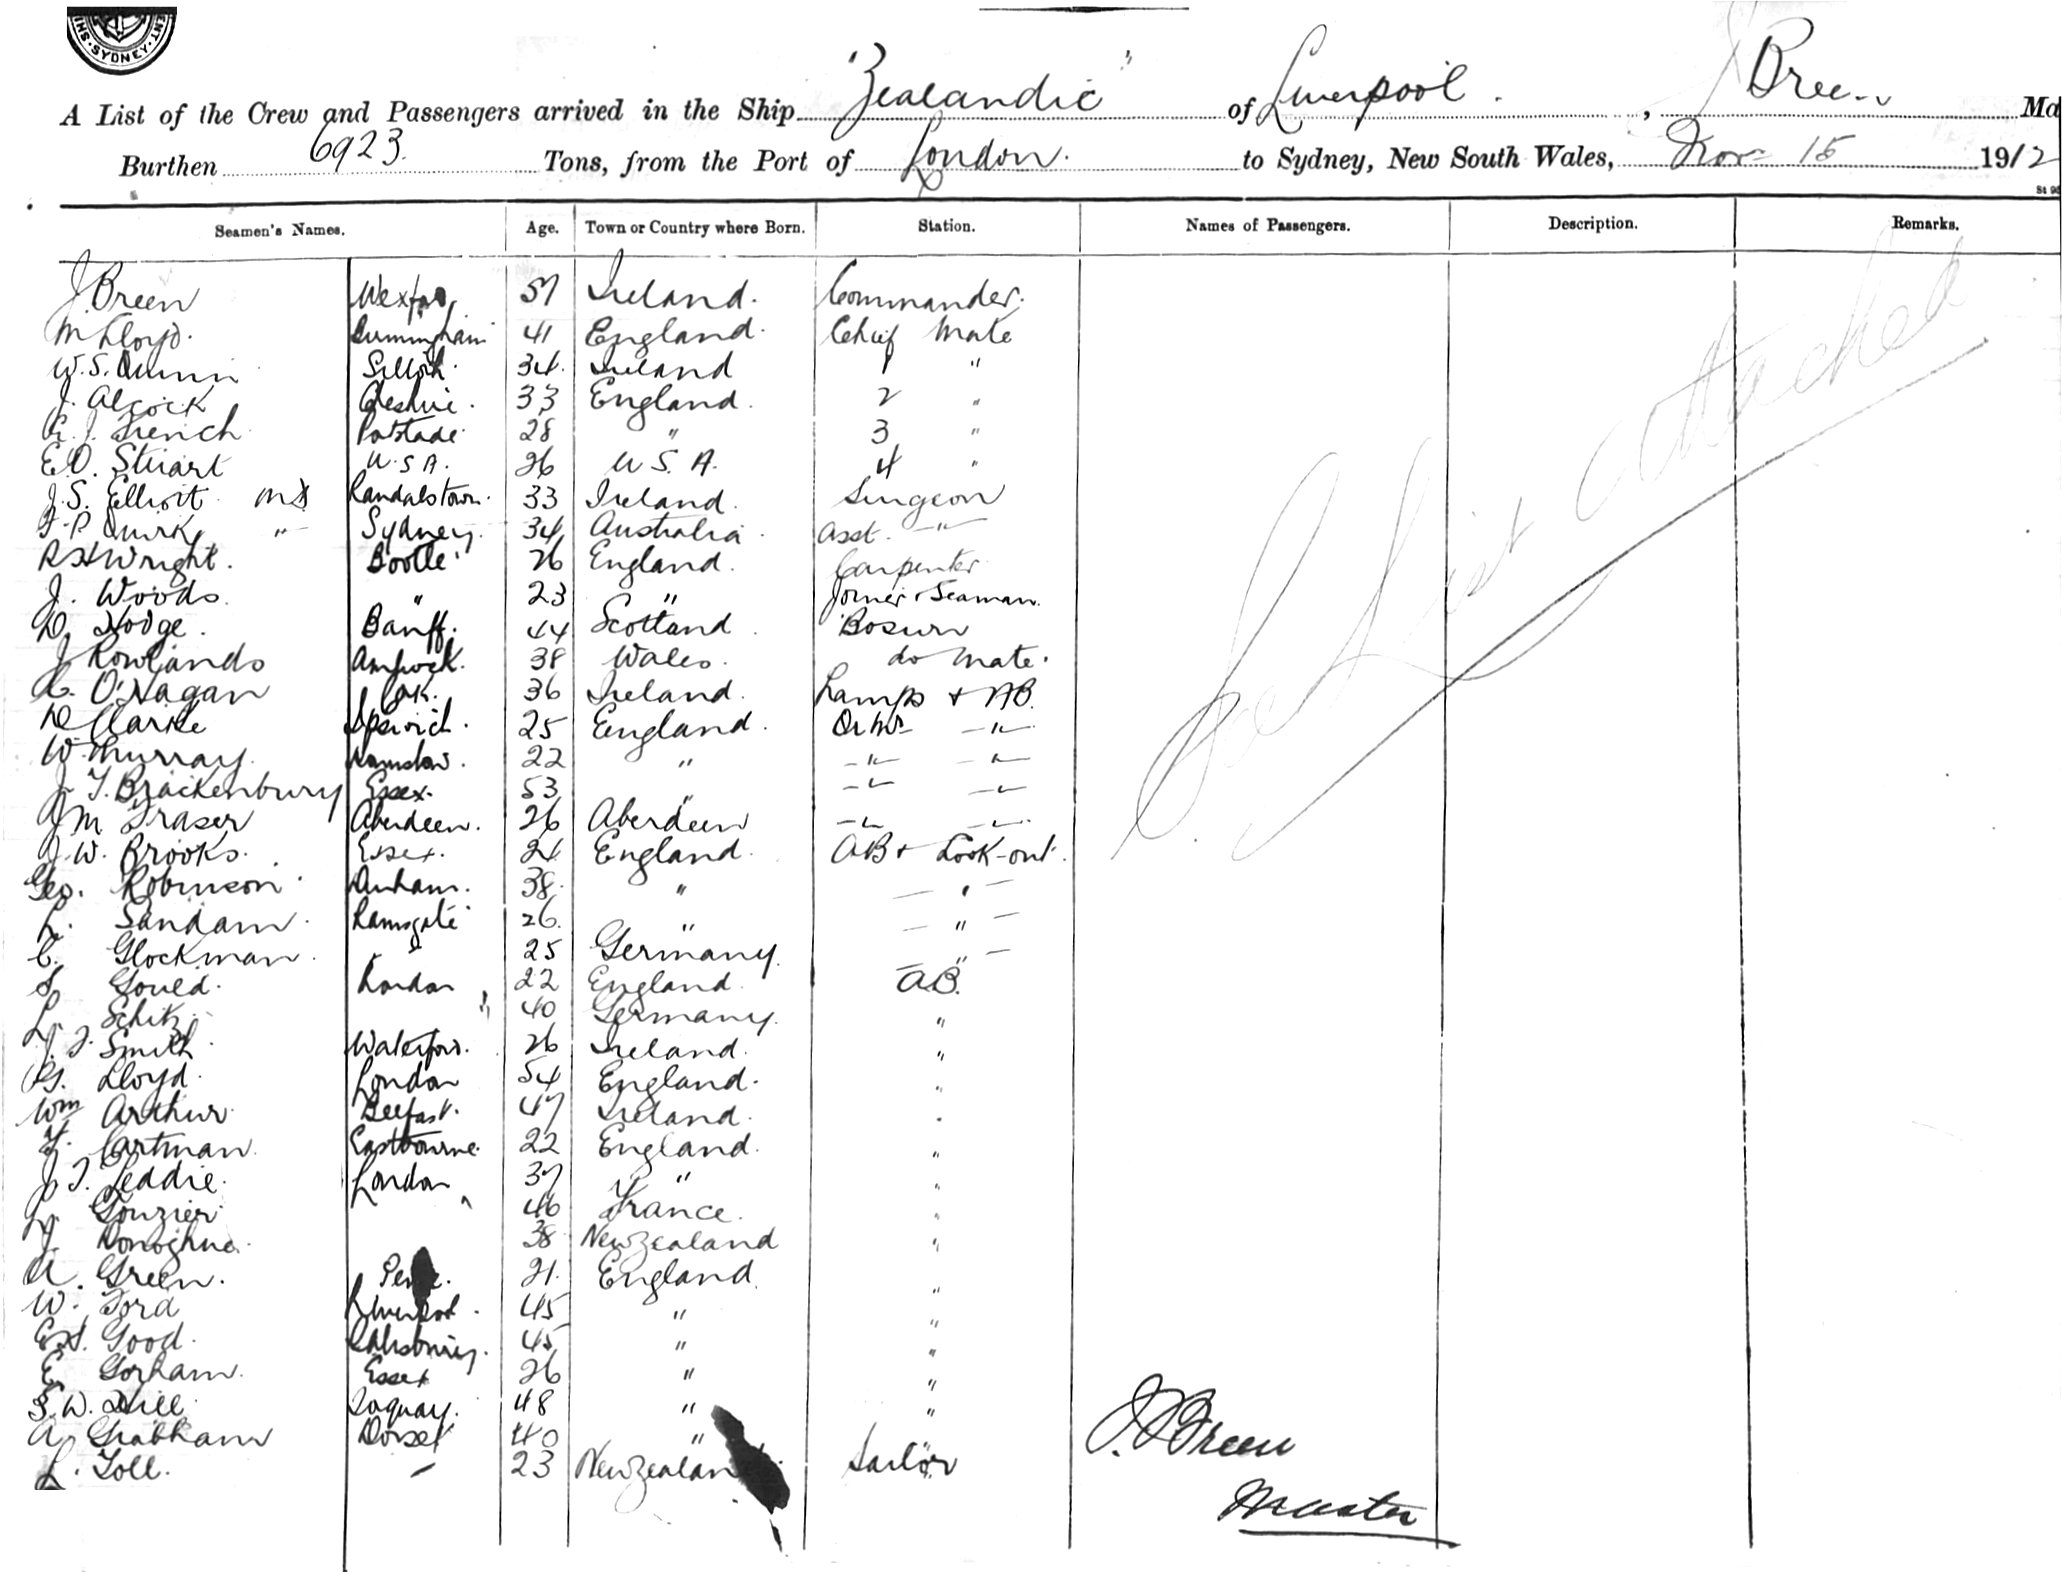 SYDNEY
A List of the Crew and Passengers arrived in the Ship "Zealandic" of Liverpool, J Breen Ma
Burthen 6923 Tons, from the Port of London to Sydney, New South Wales, Nov 15 1912
Seamen's Names. Age. Town or Country where Born. Station. Names of Passengers. Description. Remarks.
J. Breen Wexford 57 Ireland. Commander.
M Lloyd. Birmingham 41 England. Chief Mate
W. S. Quinn 34. Ireland 1 "
J. Alcock Cheshire. 33 England. 2 "
G. J. French 28 " 3 "
E.O. Stuart U.S.A. 26 U.S.A. 4 "
J. S. Elliott MD Randalstown. 33 Ireland. Surgeon
F. P. Quirk " Sydney. 34 Australia. Asst. "
R H Wright. Bootle 26 England. Carpenter
J. Woods. " 23 " Joiner & Seaman.
D. Hodge. Banff. 44 Scotland. Bosun
J Rowlands Amlwch. 38 Wales. do Mate.
O'Hagan Cork. 36 Ireland. Lamps & AB.
D Clarke Ipswich. 25 England. Qr Mr "
W. Murray. 22 " " "
J. T. Brackenbury Essex. 53 " " "
J M Fraser Aberdeen. 26 Aberdeen " "
J. W. Brooks. Essex. 24 England. AB & Look-out.
Geo. Robinson Durham. 38. " "
L. Sandam. Ramsgate 26. " "
C. Glockman. 25 Germany. "
S. Gould. London 22 England. AB.
L. Schitz " 40 Germany. "
J. J. Smith. Waterford. 26 Ireland. "
G. Lloyd. London 54 England. "
Wm Arthur. Belfast. 47 Ireland. "
F. Cartman. Eastbourne. 22 England. "
J. T. Leddie. London 37 " "
L. Gouzier " 46 France. "
J. Donoghue. 38 New Zealand "
A. Green. 21. England. "
W. Ford Liverpool. 45 " "
E.H. Good. Salisbury. 45 " "
E. Gorham. Essex 26 " "
S. W. Hill. Torquay. 48 " "
A. Grabham Dorset 40 " "
L. Toll. 23 New Zealand. Sailor
See List attached
J. Breen
Master